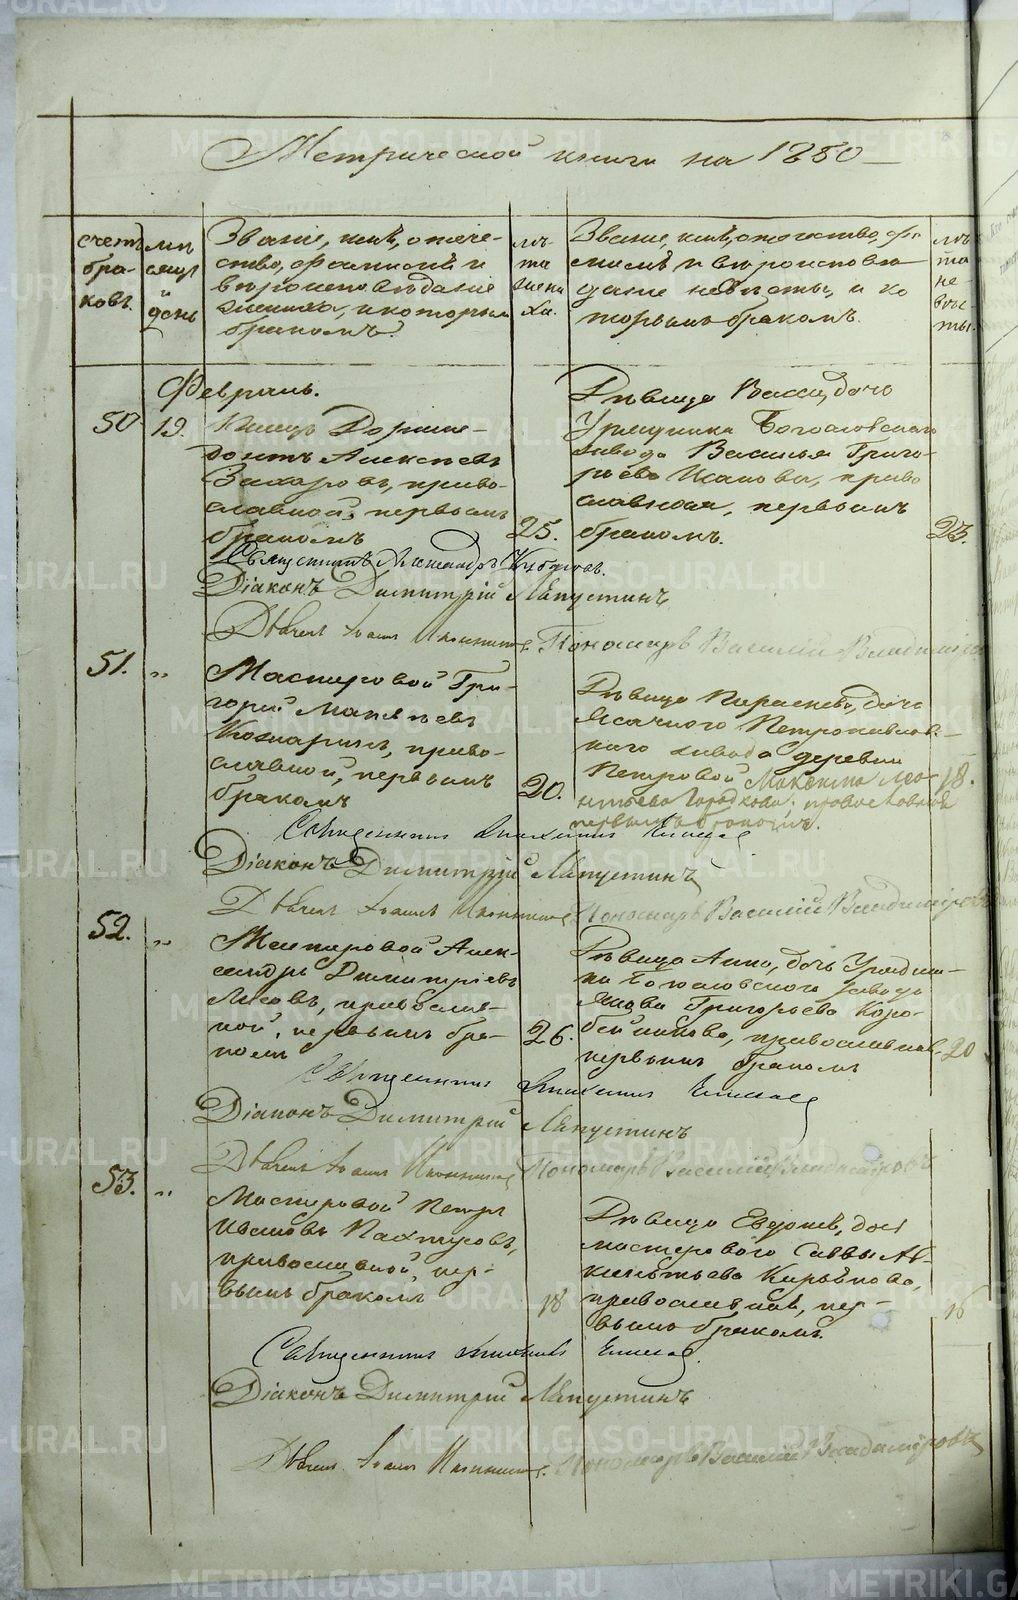 Метрической книги на 1880
счетъ браковъ.
мѣсяцъ и день
Званіе, имя, отече-
ство, фамилія и
вѣроисповѣданіе
жениха, и которымъ
бракомъ.
лѣ-
та
жени
ха.
Званіе, имя, отечество, фа-
милія и вѣроисповѣ
даніе невѣсты, и ко
торымъ бракомъ.
лѣ
та
не-
вѣс
ты.
Февраль.
50
19.
Дормие-
донтъ Алексѣевъ
Захаровъ, право-
славной, первымъ
бракомъ
25.
Дѣвица Васса, дочь
Урядника Богословскаго
завода Василья Григо-
рьева православная, первымъ
бракомъ.
23.
Священникъ Александръ
Діаконъ Димитрій Лапустинъ
Дьячекъ Іоаннъ Пономарь Василій Владиміровъ
51.
"
Мастеровой Гри-
горій
право-
славной, первымъ
бракомъ
20.
Дѣвица Параскева, дочь
Ясачнаго Петропавлов-
скаго завода деревни
Петровой Максима Лео-
нтьева православная
первымъ бракомъ.
18.
Священникъ
Діаконъ Димитрій Лапустинъ
Дьячекъ Іоаннъ Пономарь Василій Владиміровъ
52.
"
Мастеровой Алек-
сандръ Димитріевъ
Лисовъ, православ-
ной, первымъ бра-
комъ
26.
Дѣвица Анна, дочь Урядни-
ка Богословскаго завода
Якова Григорьева Коро-
бейникова, православная
первымъ бракомъ
20
Священникъ
Діаконъ Димитрій Лапустинъ
Дьячекъ Іоаннъ Пономарь Василій Владиміровъ
53.
"
Мастеровой Петръ
Ивановъ Пахтусовъ,
православной, пер-
вымъ бракомъ
18
Дѣвица Евдокія, дочь
мастероваго Саввы Ав-
православная, пер-
вымъ бракомъ.
16
Священникъ
Діаконъ Димитрій Лапустинъ
Дьячекъ Іоаннъ Пономарь Василій Владиміровъ
METRIKI.GASO-URAL.RU